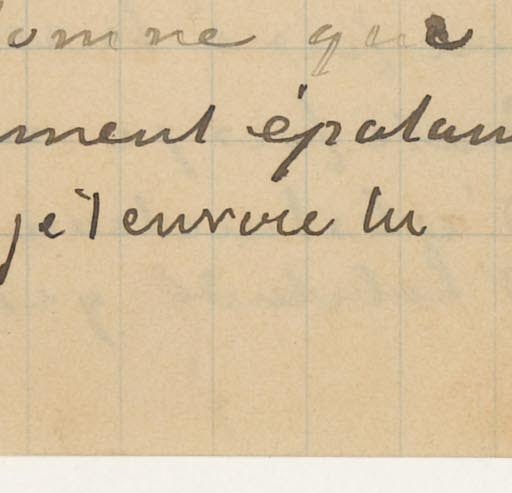 omne que
ment épatam
je l'envoie lu